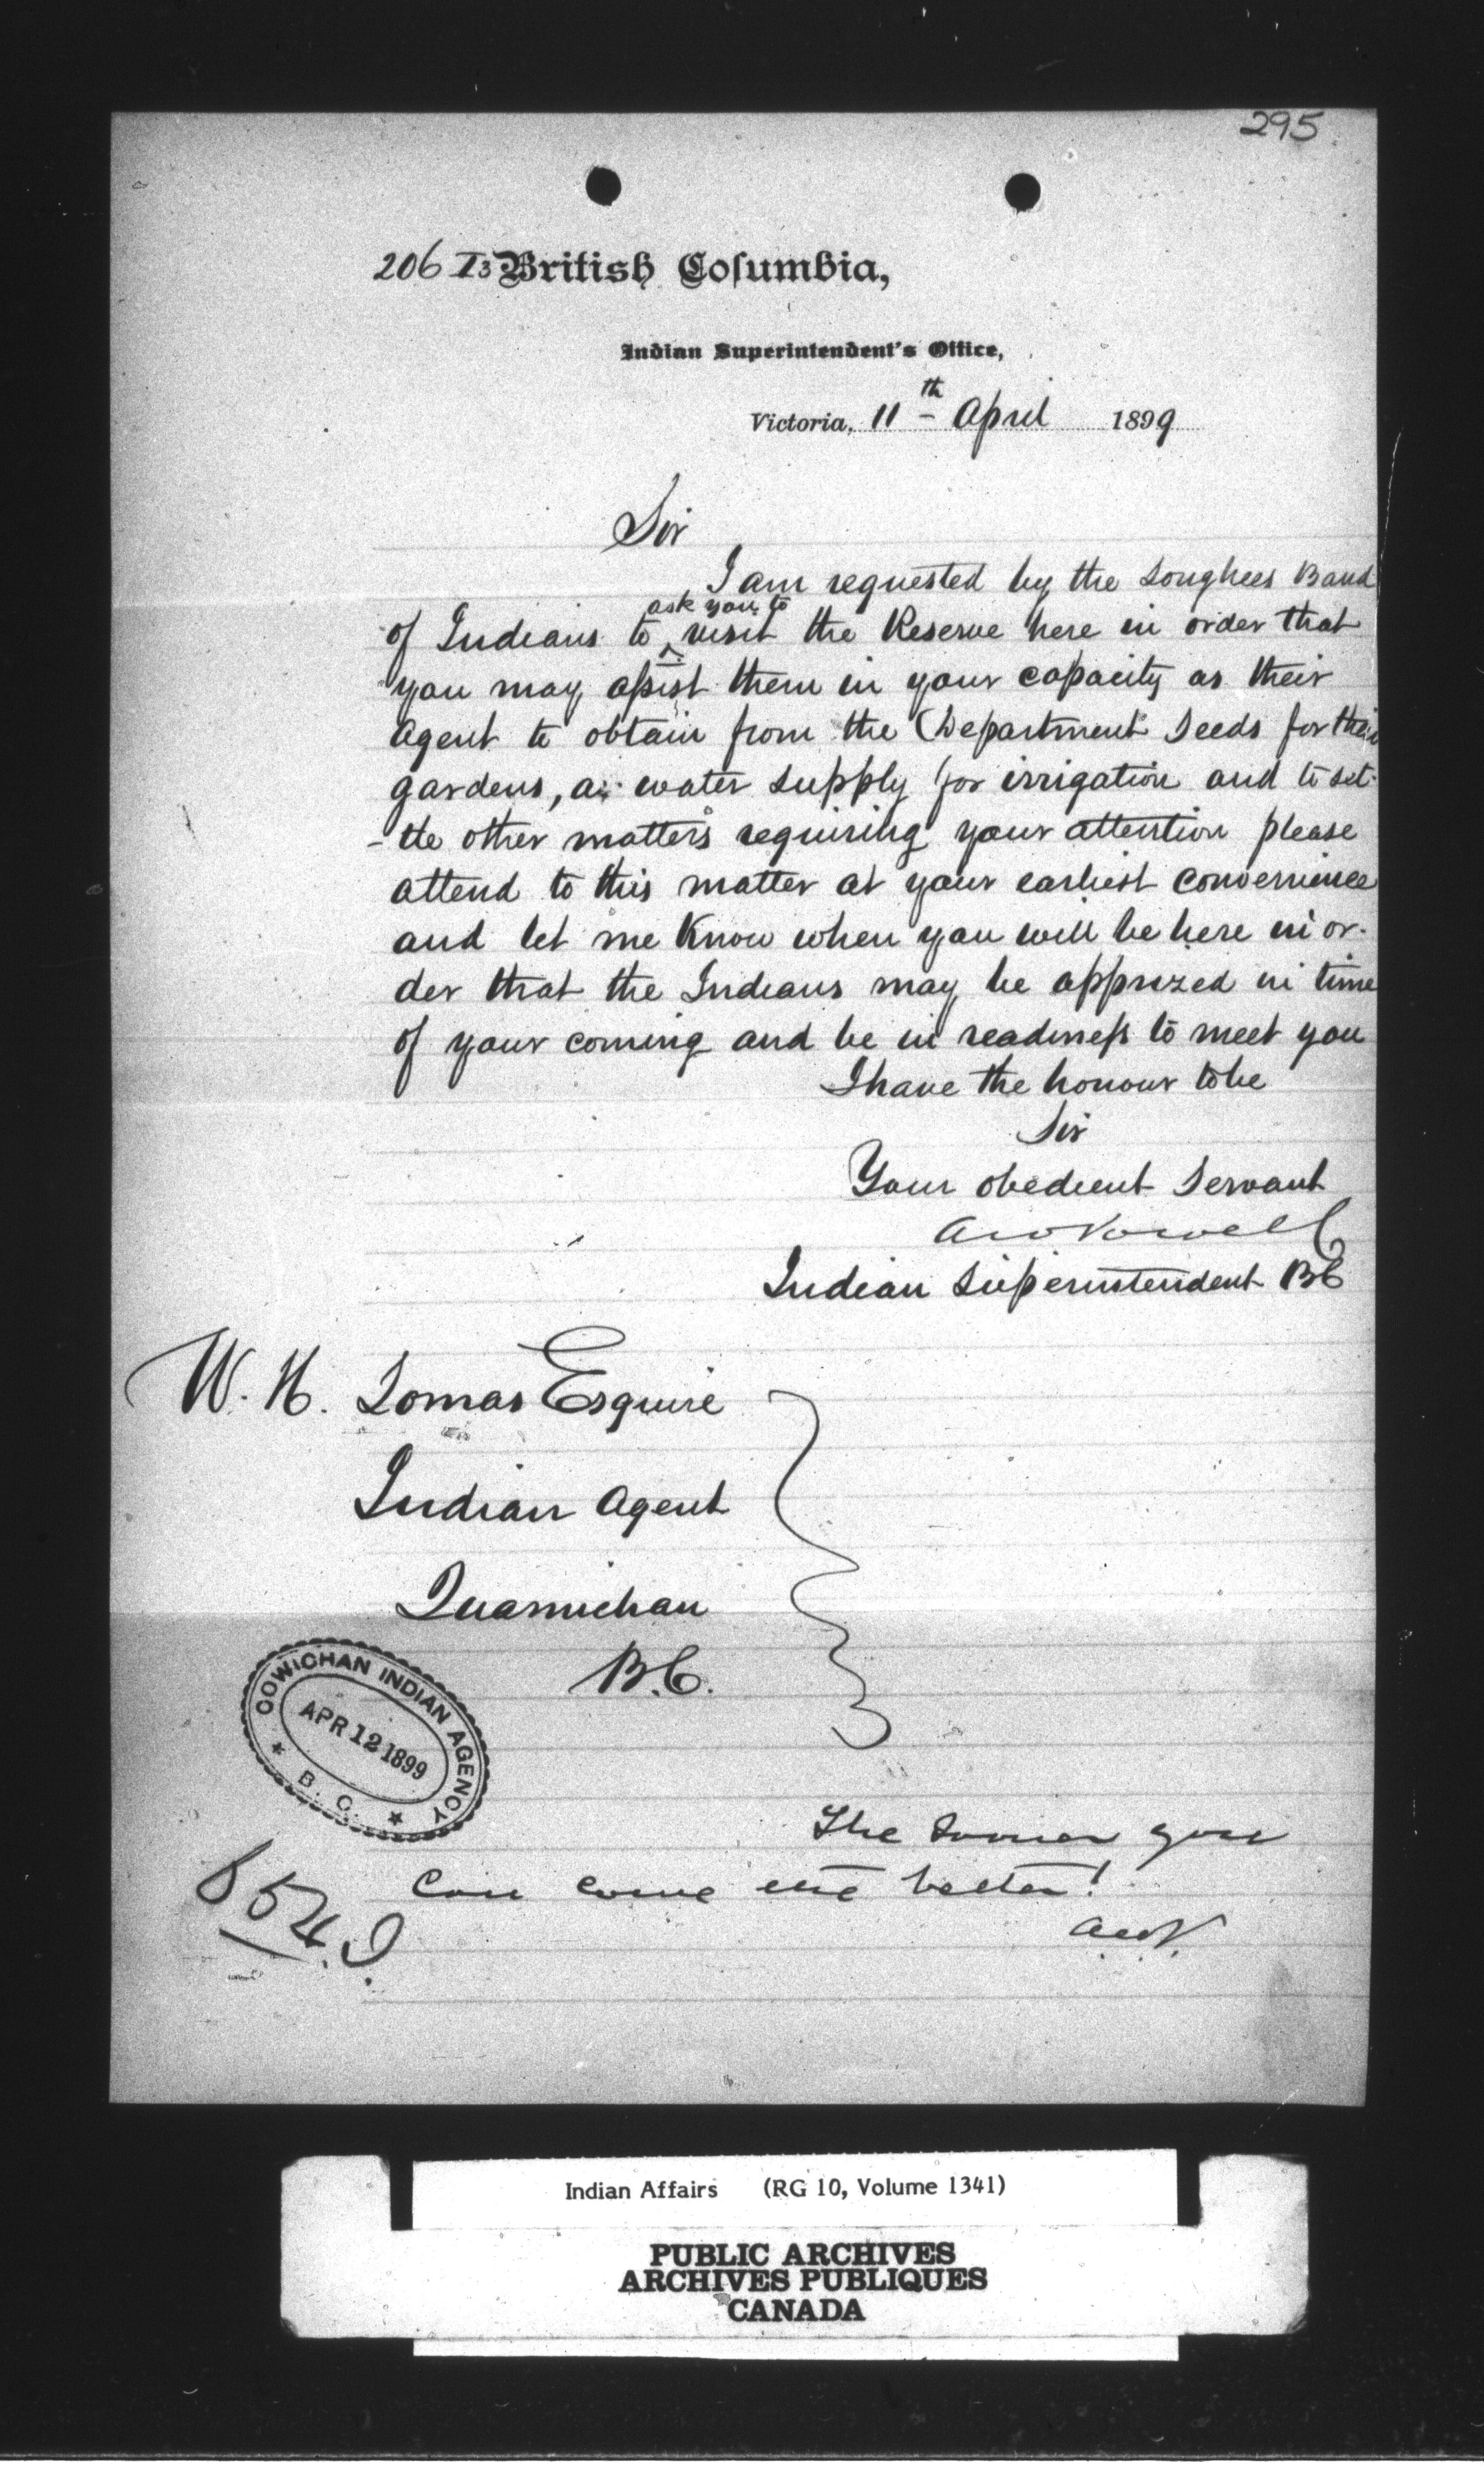 295
206 I3 British Columbia,
Indian Superintendent's Office,
Victoria, 11th April 1899
Sir
I am requested by the Songhees Band
of Indians to ^ask you to^ visit the Reserve here in order that
you may assist them in your capacity as their
Agent to obtain from the Department Seeds for their
gardens, a water supply for irrigation and to set-
-tle other matters requiring your attention please
attend to this matter at your earliest convenience
and let me know when you will be here in or-
der that the Indians may be apprized in time
of your coming and be in readiness to meet you
I have the honour to be
Sir
Your obedient Servant
A W Vowell
Indian Superintendent BC
W. H. Lomas Esquire
Indian Agent
Quamichan
B.C.
COWICHAN INDIAN AGENCY
APR 12 1899
★ B. C. ★
The sooner you
can come the better!
A.W.V.
Indian Affairs (RG 10, Volume 1341)
PUBLIC ARCHIVES
ARCHIVES PUBLIQUES
CANADA